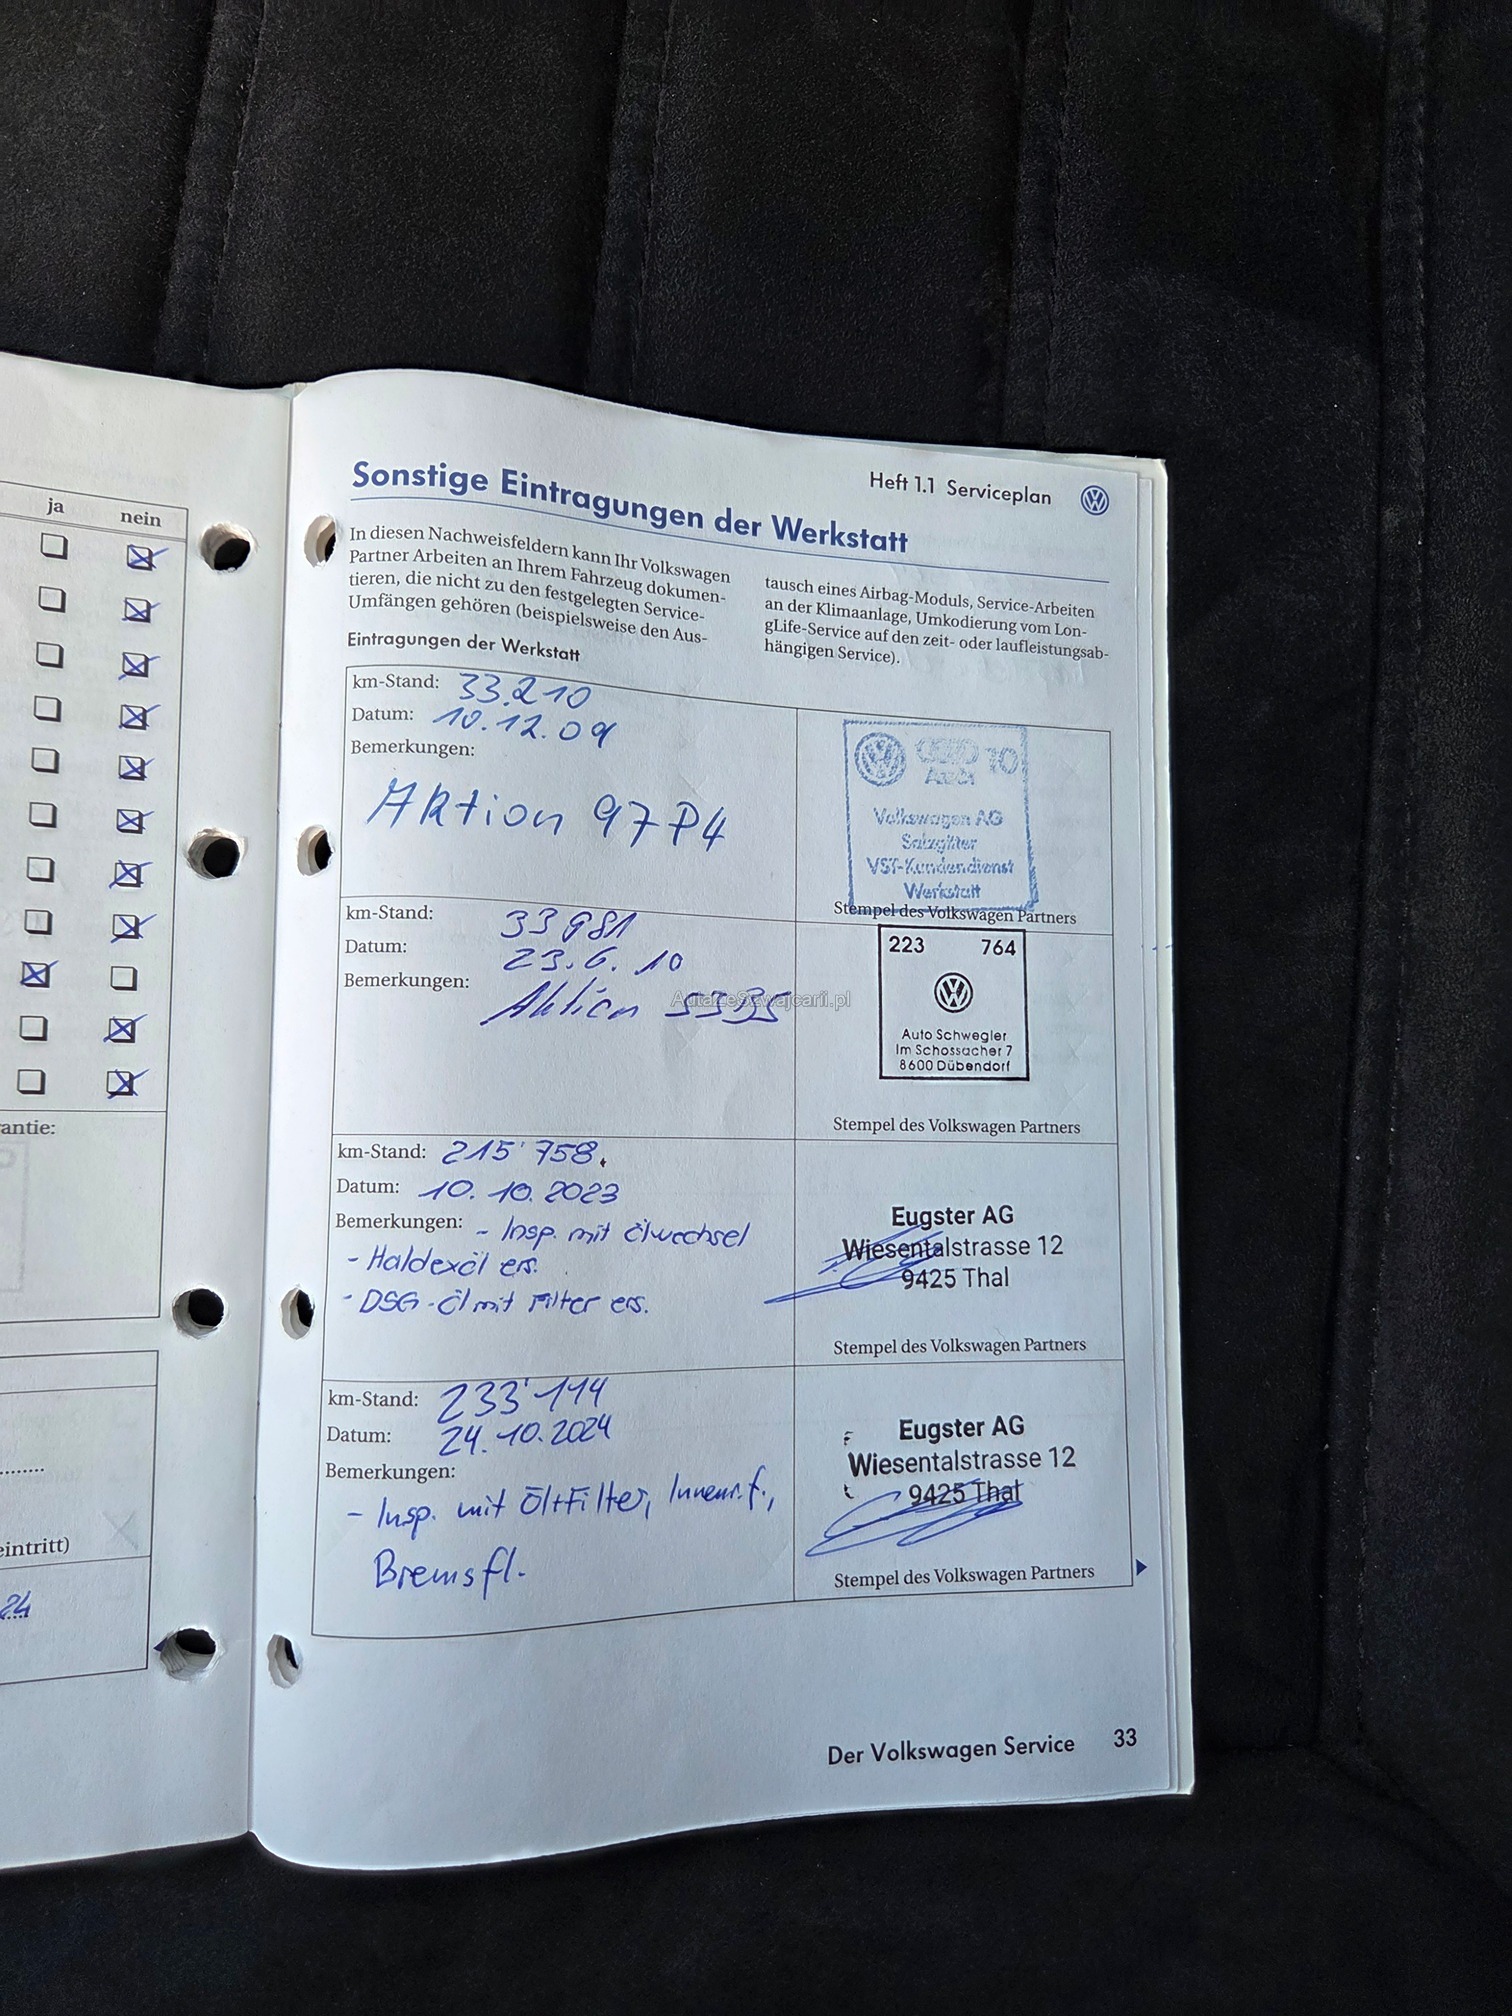 ja nein
antie:
eintritt)
24
Heft 1.1 Serviceplan
Sonstige Eintragungen der Werkstatt
In diesen Nachweisfeldern kann Ihr Volkswagen
Partner Arbeiten an Ihrem Fahrzeug dokumen-
tieren, die nicht zu den festgelegten Service-
Umfängen gehören (beispielsweise den Aus-
tausch eines Airbag-Moduls, Service-Arbeiten
an der Klimaanlage, Umkodierung vom Lon-
gLife-Service auf den zeit- oder laufleistungsab-
hängigen Service).
Eintragungen der Werkstatt
km-Stand: 33.210
Datum: 10.12.09
Bemerkungen:
Aktion 97P4
Audi 10
Volkswagen AG
Salzgitter
VST-Kundendienst
Werkstatt
Stempel des Volkswagen Partners
km-Stand: 33981
Datum: 23.6.10
Bemerkungen: Aktion 53B5
AutaZeSzwajcarii.pl
223 764
Auto Schwegler
Im Schossacher 7
8600 Dübendorf
Stempel des Volkswagen Partners
km-Stand: 215'758.
Datum: 10.10.2023
Bemerkungen: - Insp. mit ölwechsel
- Haldexöl ers.
- DSG-öl mit Filter ers.
Eugster AG
Wiesentalstrasse 12
9425 Thal
Stempel des Volkswagen Partners
km-Stand: 233'114
Datum: 24.10.2024
Bemerkungen:
- Insp. mit Öl+Filter, Innenr.f.,
Bremsfl.
Eugster AG
Wiesentalstrasse 12
9425 Thal
Stempel des Volkswagen Partners
Der Volkswagen Service 33